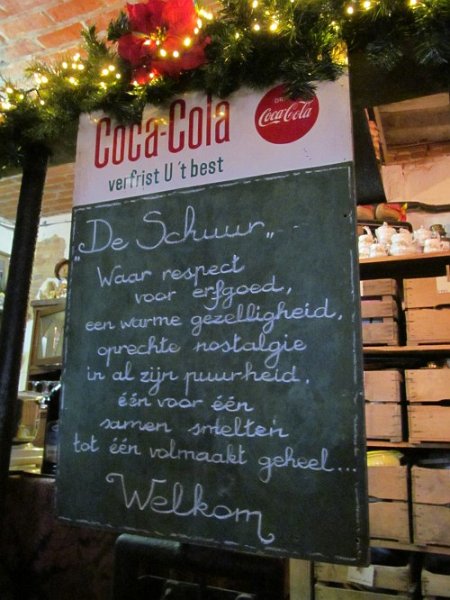 Coca-Cola
DRINK
Coca-Cola
verfrist U 't best
"De Schuur" ..
Waar respect
voor erfgoed,
een warme gezelligheid,
oprechte nostalgie
in al zijn puurheid,
één voor één
samen smelten
tot één volmaakt geheel...
Welkom